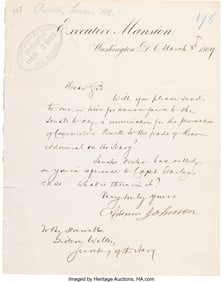 Executive Mansion,
Washington, D.C. March 3d 1869
Dear Sir.
Will you please send
to me, in time for transmission to the
Senate to-day, a nomination for the promotion
of Commodore Powell to the grade of Rear
Admiral in the Navy?
Senator has called
on you in reference to Capt.
case. What is there in it?
Very truly yours
Andrew Johnson
To the Honorable
Gideon Welles,
Secretary of the Navy
Imaged by Heritage Auctions, HA.com